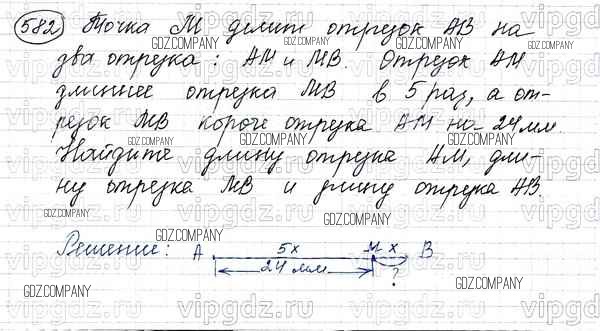 582. Точка М делит отрезок АВ на
два отрезка: АМ и МВ. Отрезок АМ
длиннее отрезка МВ в 5 раз, а от-
резок МВ короче отрезка АМ на 24 мм.
Найдите длину отрезка АМ, дли-
ну отрезка МВ и длину отрезка АВ.
Решение: А 5х М х В
24 мм ?
vipgdz.ru
GDZ.COMPANY